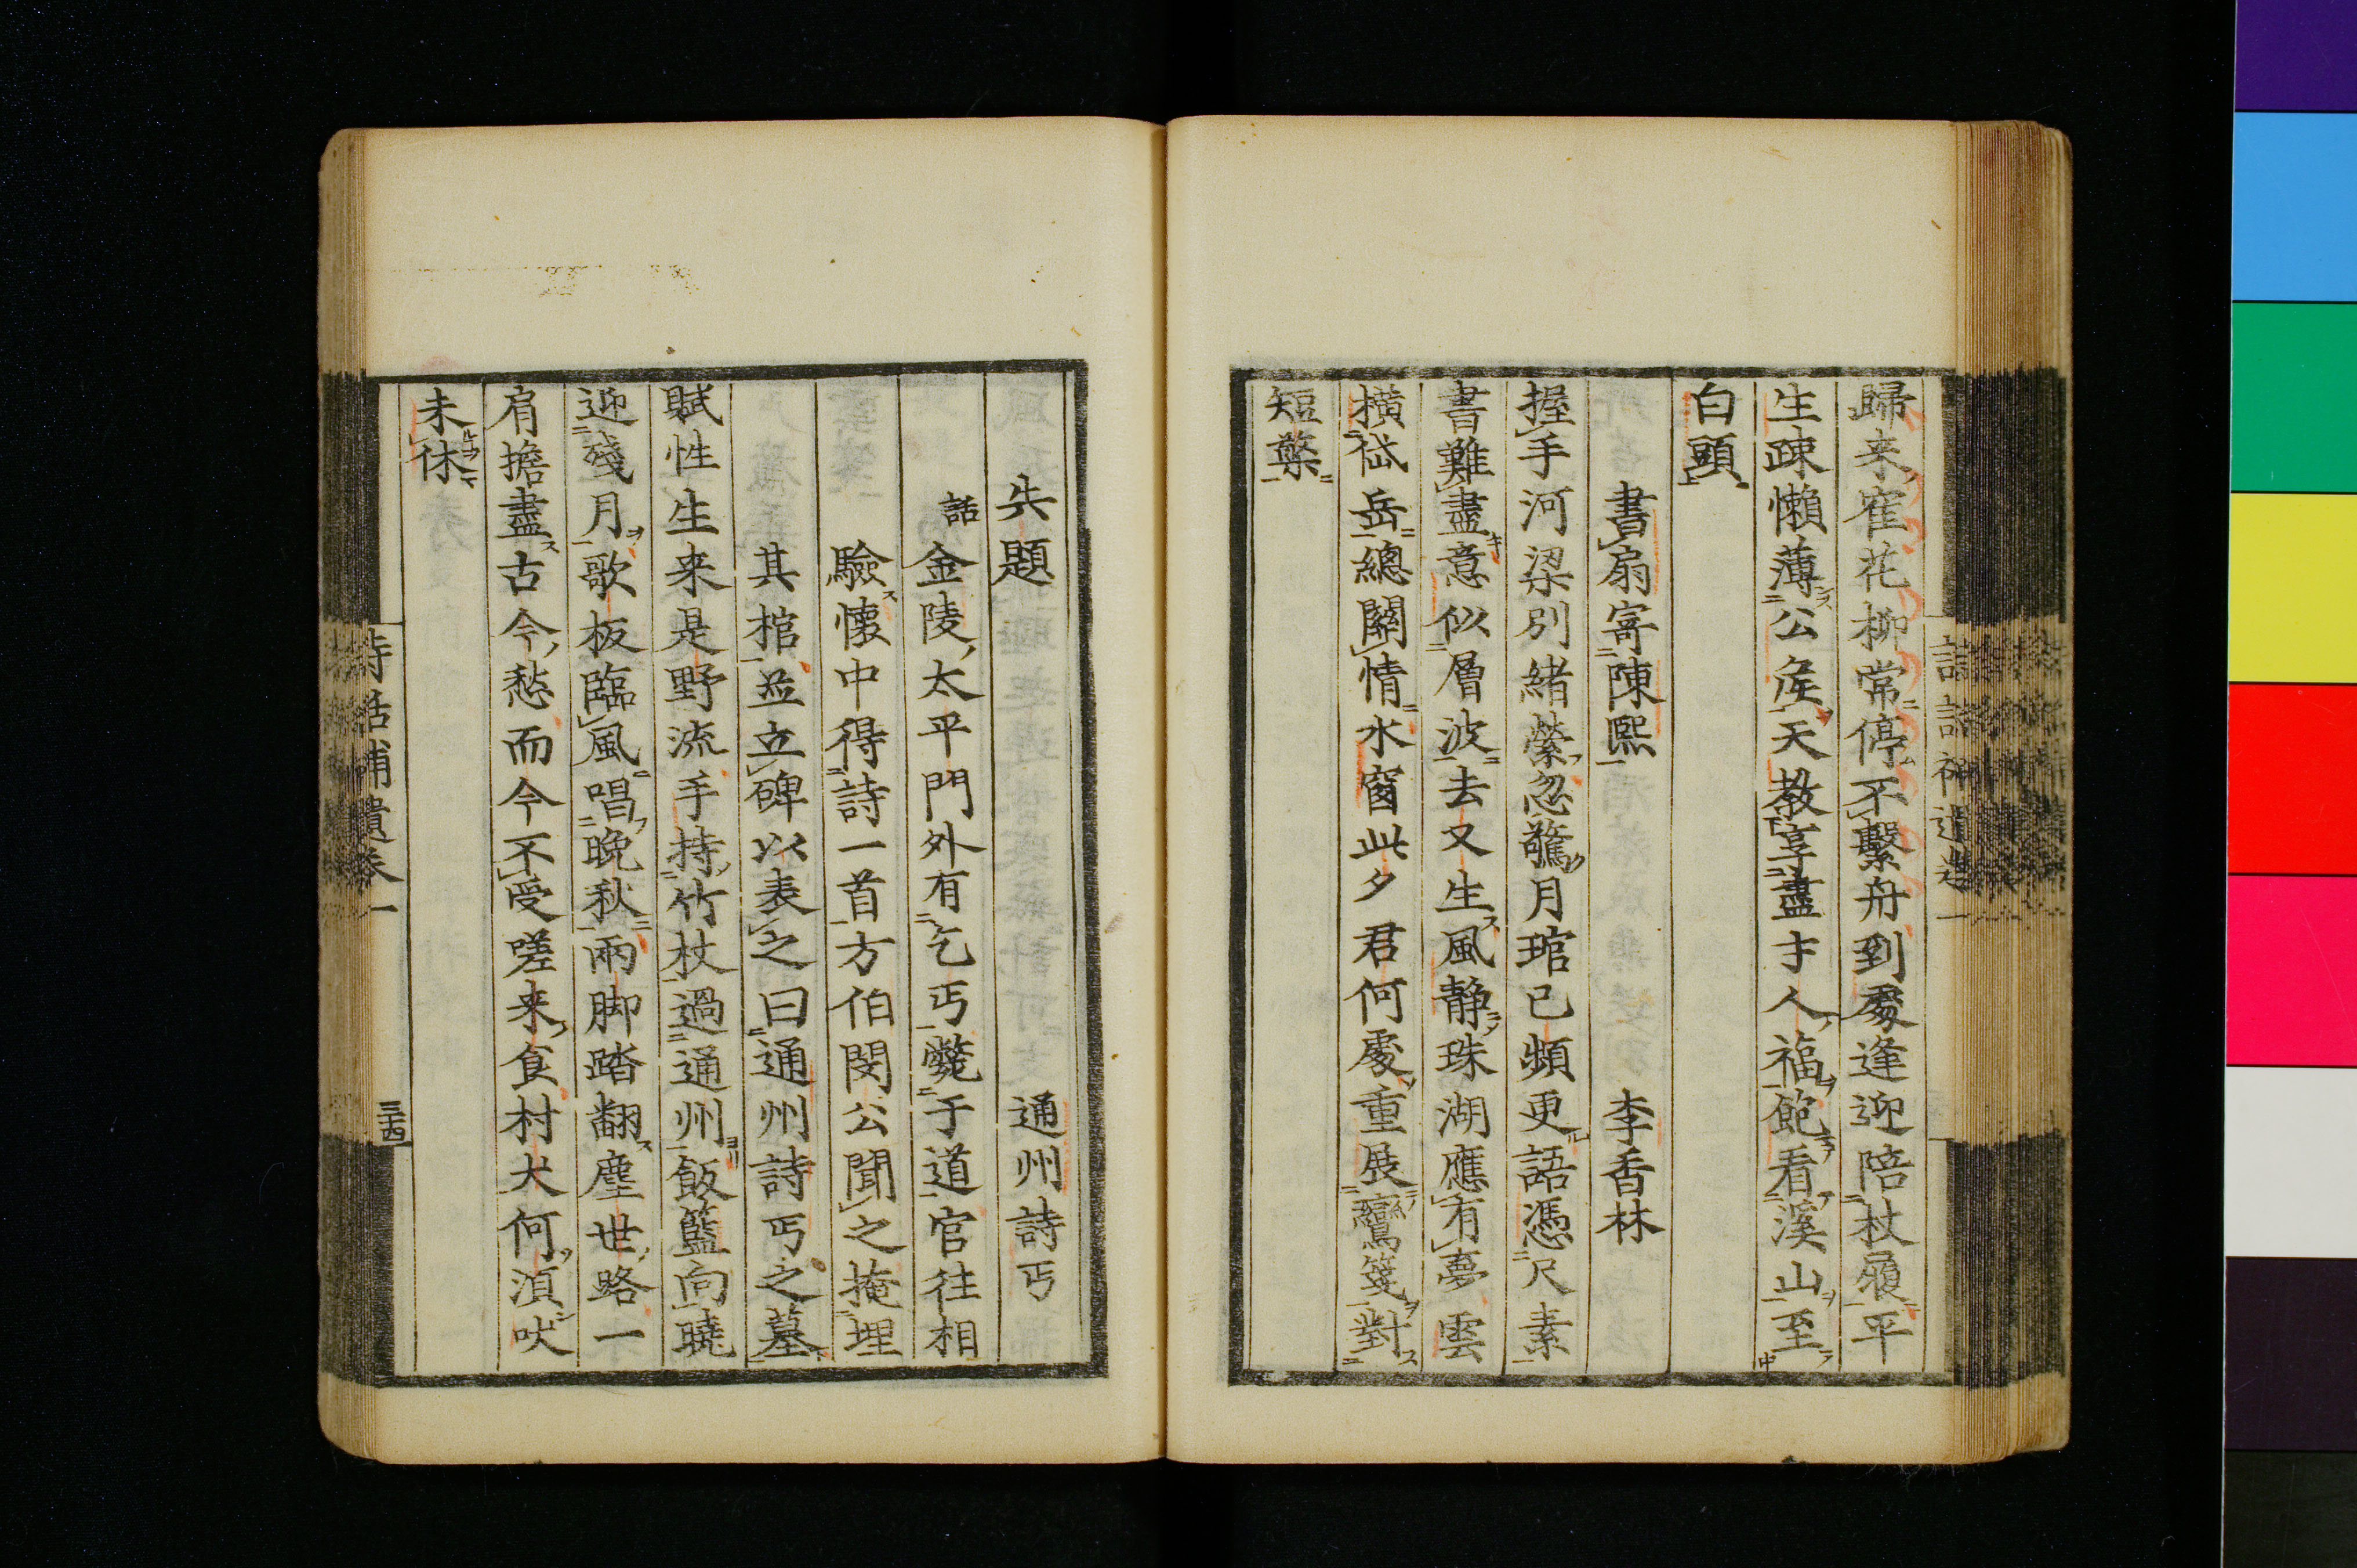 歸来寉花柳常停不繫舟到處逢迎陪杖屨平
生疎懶薄公矦天教享盡才人福飽看溪山至
白頭
書扇寄陳熙　李香林
握手河梁別緒縈忽驚月琯已頻更語憑尺素
書難盡意似層波去又生風靜珠湖應有夢雲
橫岱岳總關情水窗此夕君何處重展鸞箋對
短檠
失題　通州詩丐
話　金陵太平門外有乞丐斃于道官往相
驗懷中得詩一首方伯閔公聞之掩埋
其棺並立碑以表之曰通州詩丐之墓
賦性生来是野流手持竹杖過通州飯籃向曉
迎殘月歌板臨風唱晚秋兩脚踏翻塵世路一
肩擔盡古今愁而今不受嗟来食村犬何湏吠
未休
詩話補遺卷一
三十四